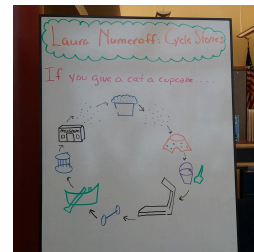 Laura Numeroff: Cycle Stories
If you give a cat a cupcake ...
museum